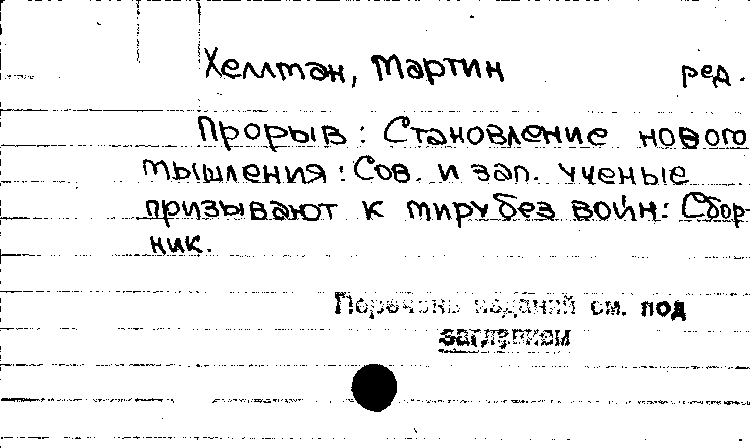 Хеллман, Мартин ред.
Прорыв: Становление нового
мышления: Сов. и зап. ученые
призывают к миру без войн: Сбор-
ник.
Перечень изданий см. под
заглавием